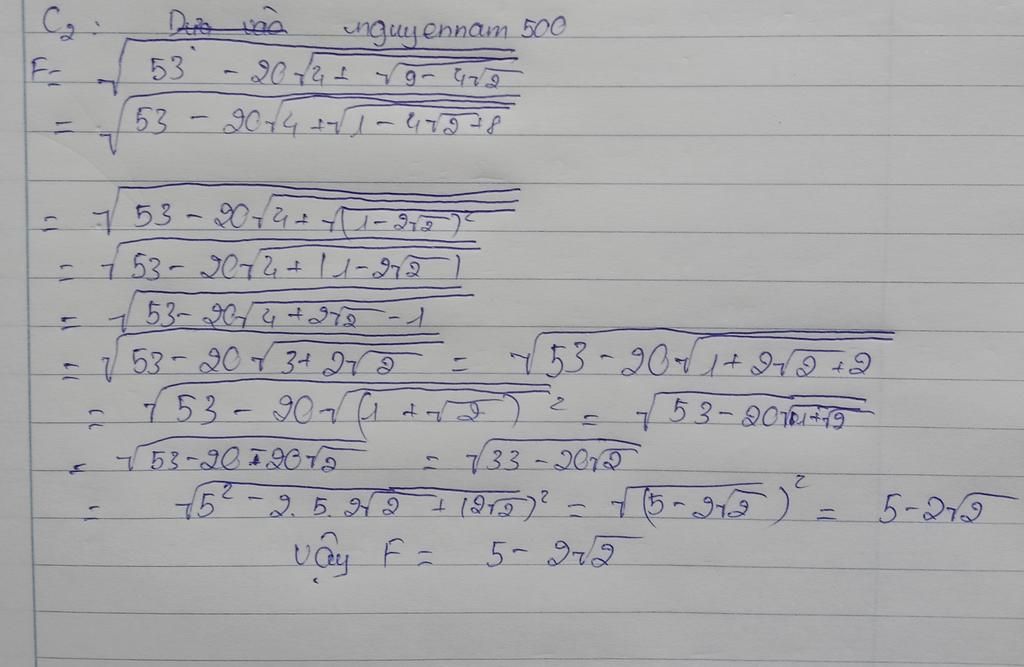 C₂: Dựa vào nguyennam 500
F = √(53 - 20√(4 + √(9 - 4√2)))
= √(53 - 20√(4 + √(1 - 4√2 + 8)))
= √(53 - 20√(4 + √((1 - 2√2)²)))
= √(53 - 20√(4 + |1 - 2√2|))
= √(53 - 20√(4 + 2√2 - 1))
= √(53 - 20√(3 + 2√2)) = √(53 - 20√(1 + 2√2 + 2))
= √(53 - 20√((1 + √2)²)) = √(53 - 20√(1 + √2))
= √(53 - 20 - 20√2) = √(33 - 20√2)
= √(5² - 2.5.2√2 + (2√2)²) = √((5 - 2√2)²) = 5 - 2√2
Vậy F = 5 - 2√2